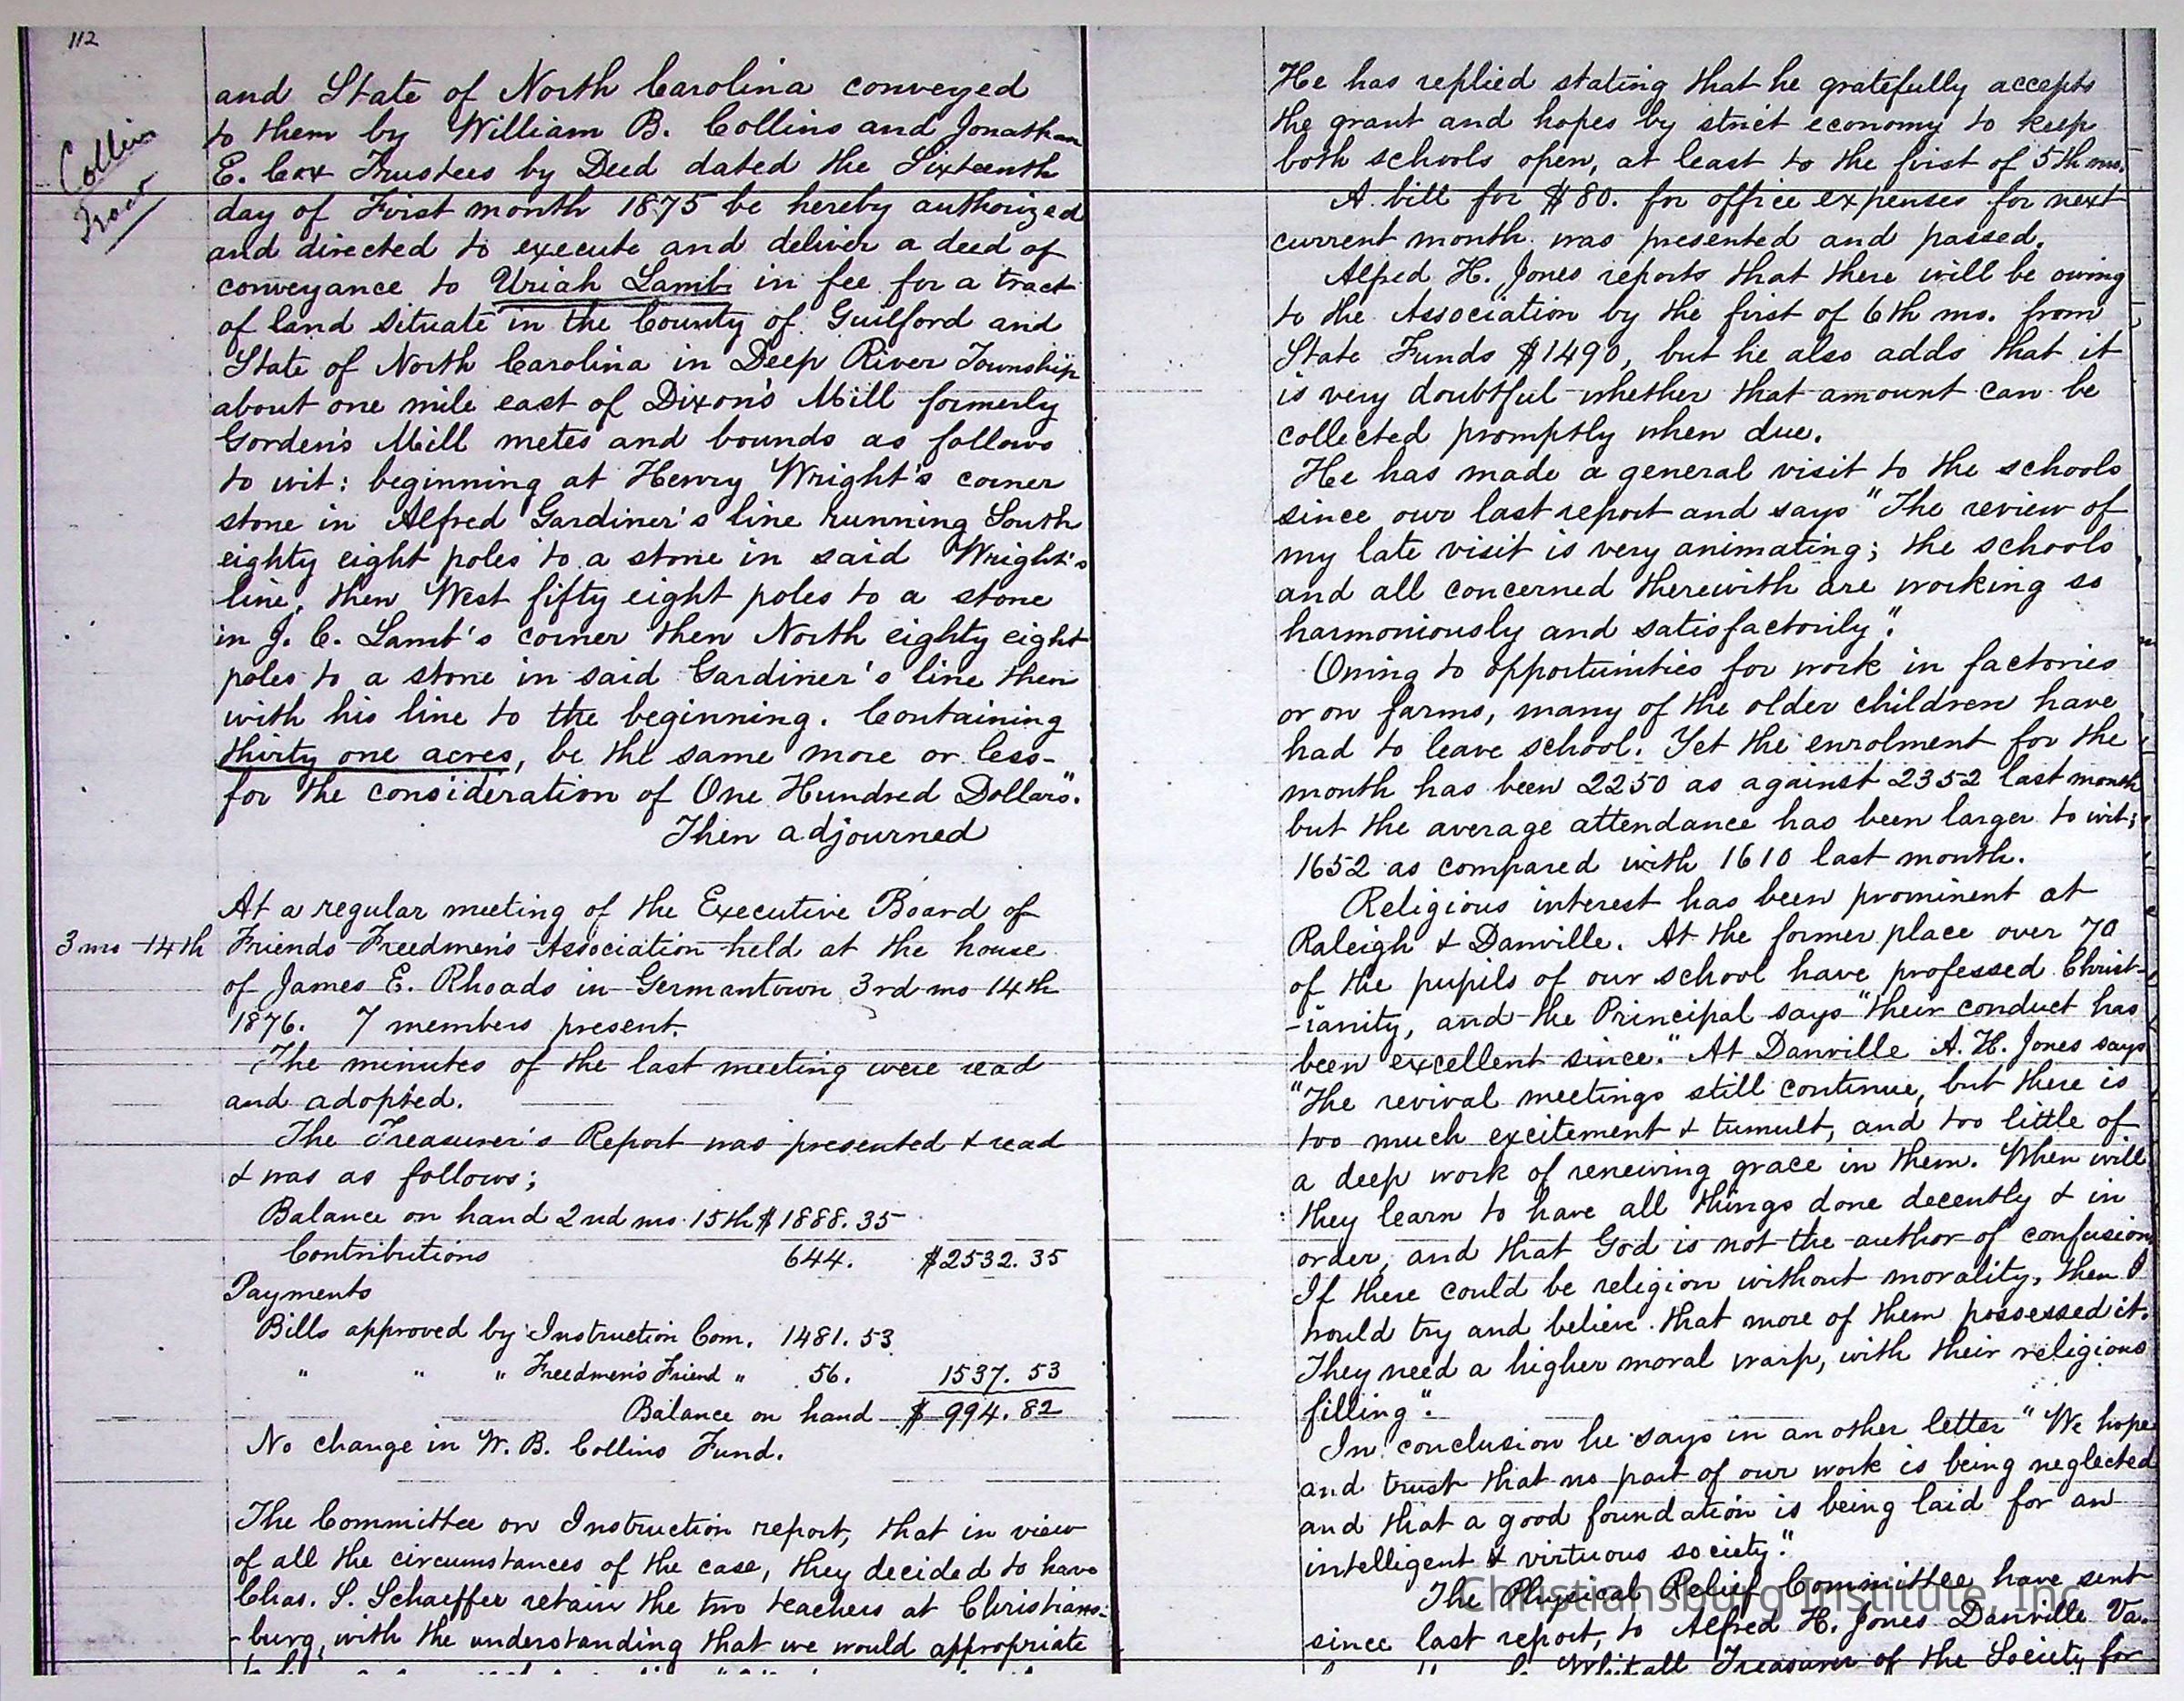 112
Collin
Tract
and State of North Carolina conveyed
to them by William B. Collins and Jonathan
E. Cox Trustees by Deed dated the Sixteenth
day of First month 1875 be hereby authorized
and directed to execute and deliver a deed of
conveyance to Uriah Lamb in fee for a tract
of land situate in the County of Guilford and
State of North Carolina in Deep River Township
about one mile east of Dixon's Mill formerly
Gorden's Mill metes and bounds as follows
to wit: beginning at Henry Wright's corner
stone in Alfred Gardiner's line running South
eighty eight poles to a stone in said Wright's
line, then West fifty eight poles to a stone
in J. C. Lamb's corner then North eighty eight
poles to a stone in said Gardiner's line then
with his line to the beginning. Containing
thirty one acres, be the same more or less-
for the consideration of One Hundred Dollars".
Then adjourned
At a regular meeting of the Executive Board of
3 mo 14th Friends Freedmen's Association held at the house
of James E. Rhoads in Germantown 3rd mo 14th
1876. 7 members present.
The minutes of the last meeting were read
and adopted.
The Treasurer's Report was presented & read
& was as follows;
Balance on hand 2nd mo 15th $1888.35
Contributions 644. $2532.35
Payments
Bills approved by Instruction Com. 1481.53
" " " Freedmen's Friend " 56. 1537.53
Balance on hand $ 994.82
No change in W. B. Collins Fund.
The Committee on Instruction report, that in view
of all the circumstances of the case, they decided to have
Chas. S. Schaeffer retain the two teachers at Christians-
-burg, with the understanding that we would appropriate
He has replied stating that he gratefully accepts
the grant and hopes by strict economy to keep
both schools open, at least to the first of 5th mo.
A bill for $80. for office expenses for next
current month was presented and passed.
Alfred H. Jones reports that there will be owing
to the Association by the first of 6th mo. from
State Funds $1490, but he also adds that it
is very doubtful whether that amount can be
collected promptly when due.
He has made a general visit to the schools
since our last report and says "The review of
my late visit is very animating; the schools
and all concerned therewith are working so
harmoniously and satisfactorily".
Owing to opportunities for work in factories
or on farms, many of the older children have
had to leave school. Yet the enrolment for the
month has been 2250 as against 2352 last month
but the average attendance has been larger to wit;
1652 as compared with 1610 last month.
Religious interest has been prominent at
Raleigh & Danville. At the former place over 70
of the pupils of our school have professed Christ-
-ianity, and the Principal says "their conduct has
been excellent since." At Danville A. H. Jones says
"The revival meetings still continue, but there is
too much excitement & tumult, and too little of
a deep work of renewing grace in them. When will
they learn to have all things done decently & in
order, and that God is not the author of confusion
If there could be religion without morality, then I
would try and believe that more of them possessed it.
They need a higher moral warp, with their religious
filling".
In conclusion he says in another letter "We hope
and trust that no part of our work is being neglected
and that a good foundation is being laid for an
intelligent & virtuous society."
The Physical Relief Committee have sent
since last report, to Alfred H. Jones Danville Va.
Whitall Treasurer of the Society for
Christiansburg Institute, Inc